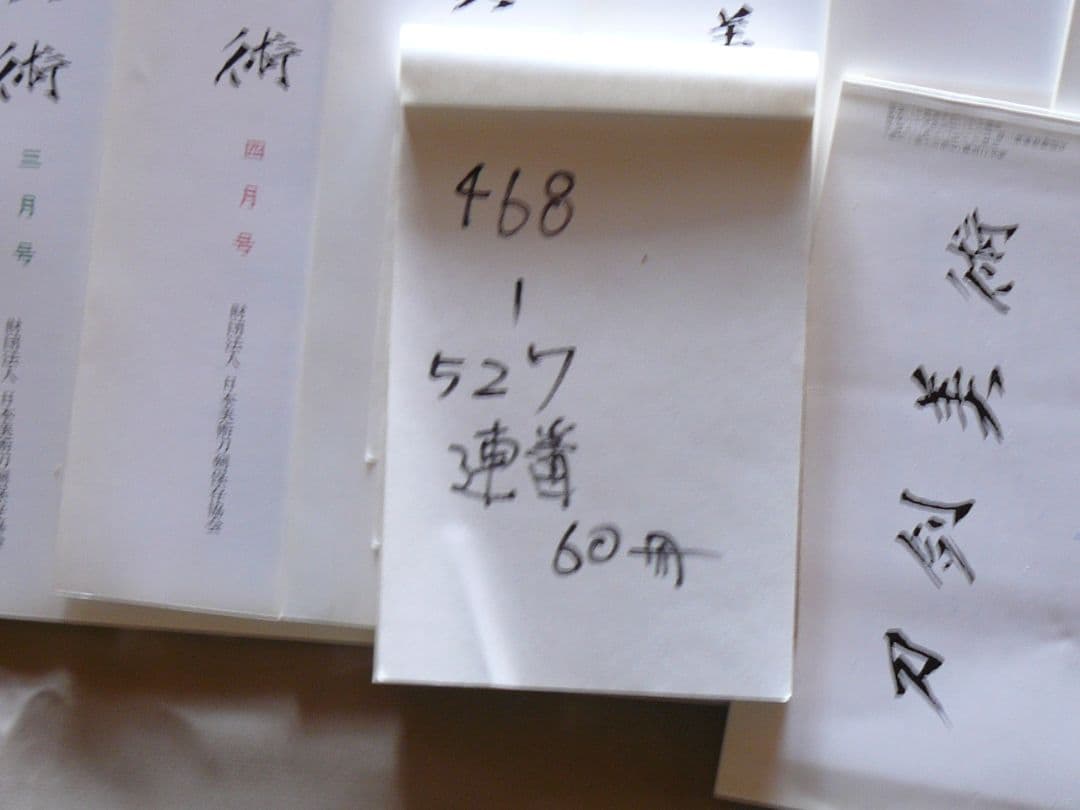 術
三月号
財団法人 日本美術刀剣保存協会
術
四月号
財団法人 日本美術刀剣保存協会
美
468
|
527
連番
60冊
刀剣美術